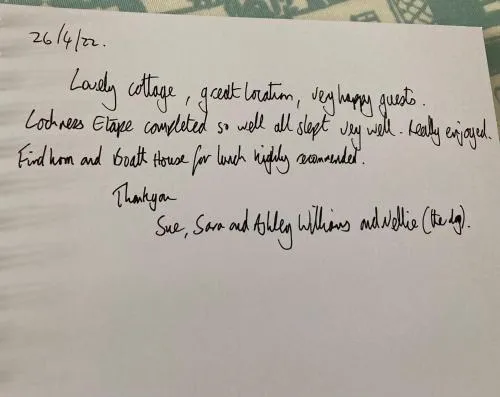 26/4/22.
Lovely cottage, great location, very happy guests.
Lochness Etape completed so well all slept very well. Really enjoyed.
Findhorn and Boatt House for lunch highly recommended.
Thankyou
Sue, Sara and Ashley Williams and Nellie (the dog).